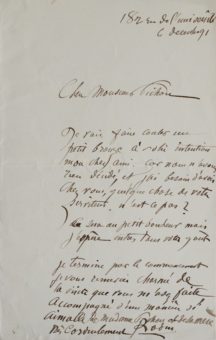 182 rue de l'université
6 decembre 91
Cher Monsieur
Je vais faire couler un
petit bronze à votre intention
mon cher ami. car nous n'avons
rien décidé, et j'ai besoin d'avoir
chez vous, quelque chose de votre
serviteur. n'est ce pas?
Ce sera un petit bonheur mais
Je termine par le commencement
je vous remercie charmé de
la visite que vous nous avez faite
accompagné d'une manière si
aimable de madame
Bien Cordialement Rodin